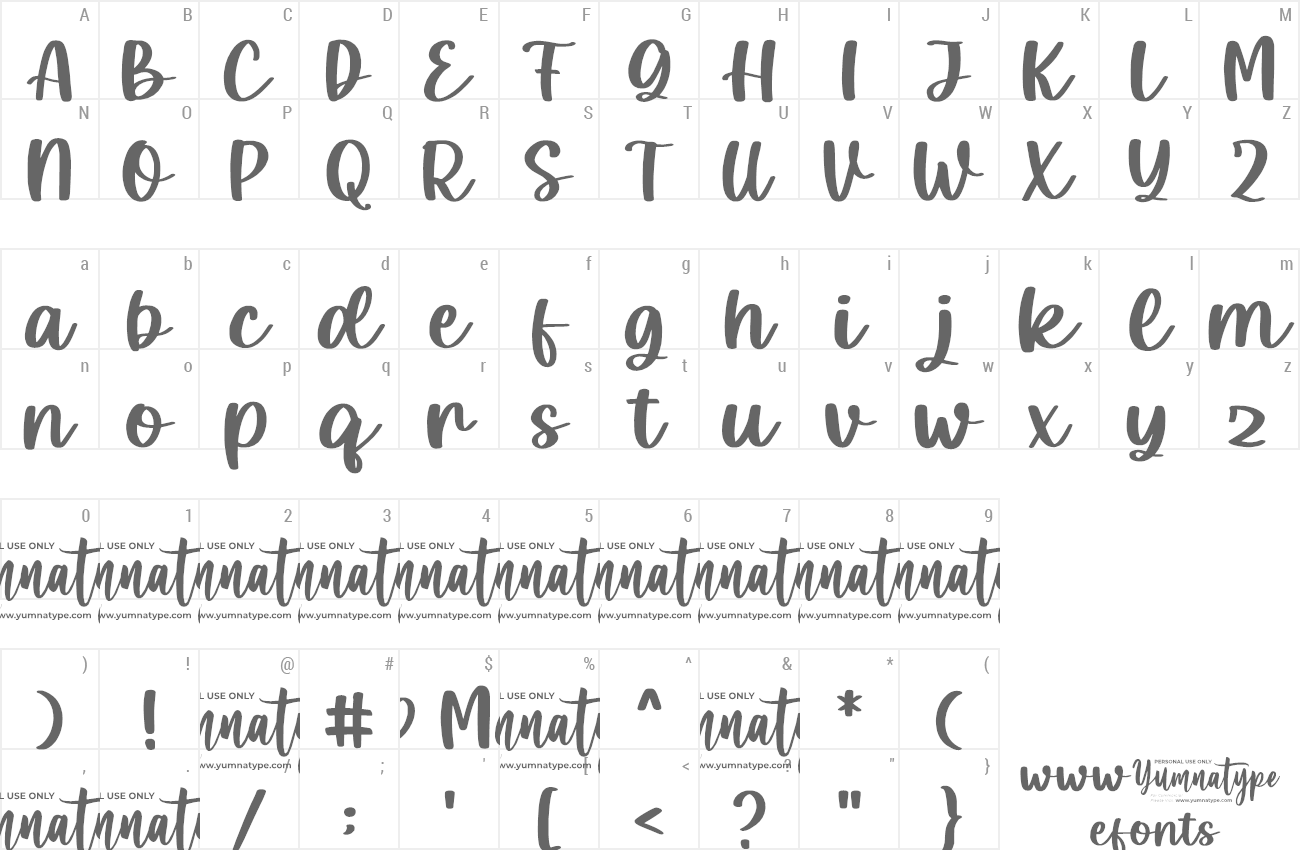 A B C D E F G H I J K L M
A B C D E F G H I J K L M
N O P Q R S T U V W X Y Z
N O P Q R S T U V W X Y Z
a b c d e f g h i j k l m
a b c d e f g h i j k l m
n o p q r s t u v w x y z
n o p q r s t u v w x y z
0 1 2 3 4 5 6 7 8 9
L USE ONLY L USE ONLY L USE ONLY L USE ONLY L USE ONLY L USE ONLY L USE ONLY L USE ONLY L USE ONLY L USE ONLY
nnat nnat nnat nnat nnat nnat nnat nnat nnat nnat
ww.yumnatype.com ww.yumnatype.com ww.yumnatype.com ww.yumnatype.com ww.yumnatype.com ww.yumnatype.com ww.yumnatype.com ww.yumnatype.com ww.yumnatype.com ww.yumnatype.com
) ! @ # $ % ^ & * (
L USE ONLY L USE ONLY L USE ONLY
) ! nnat # ) M nnat ^ nnat * (
ww.yumnatype.com ww.yumnatype.com ww.yumnatype.com
, . / ; ' [ < ? " }
L USE ONLY L USE ONLY
nnat nnat / ; ' [ < ? " }
PERSONAL USE ONLY
www Yumnatype
www.yumnatype.com
efonts